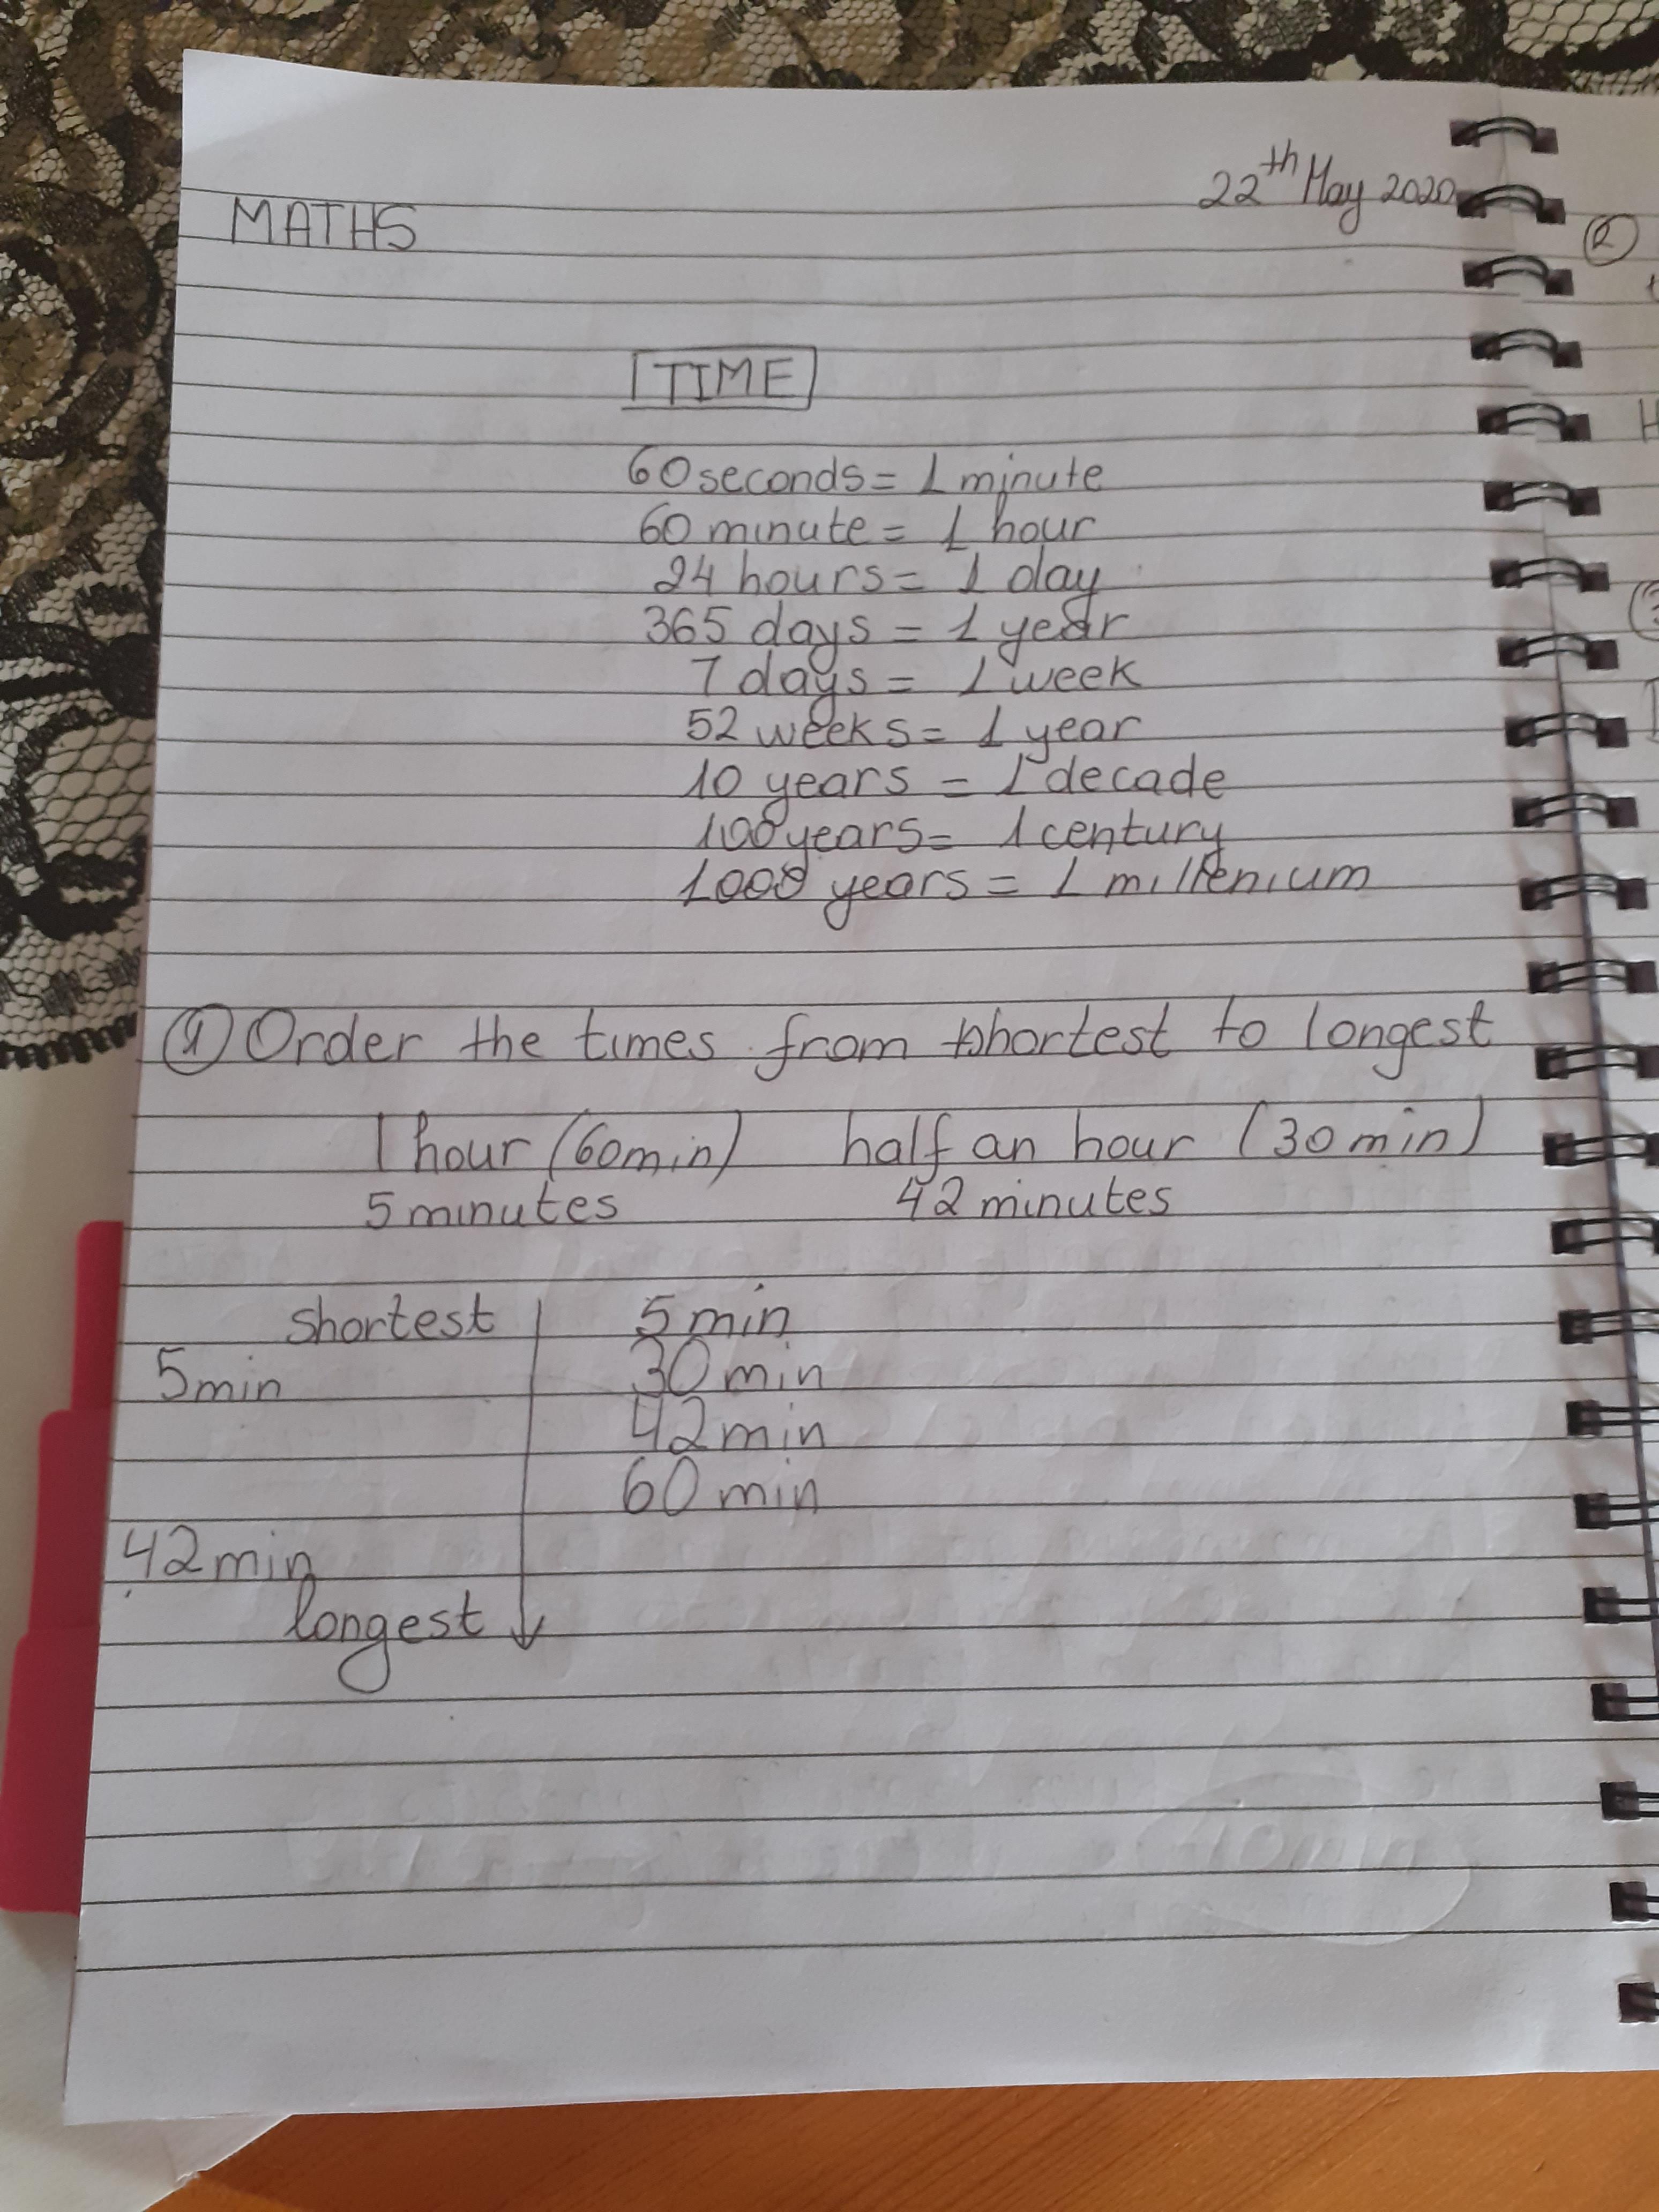 22th May 2020
MATHS
TIME
60 seconds = 1 minute
60 minute = 1 hour
24 hours = 1 day
365 days = 1 year
7 days = 1 week
52 weeks = 1 year
10 years = 1 decade
100 years = 1 century
1000 years = 1 millenium
① Order the times from shortest to longest
1 hour (60 min) half an hour (30 min)
5 minutes 42 minutes
shortest 5 min
5 min 30 min
42 min
60 min
42 min
longest
②
H